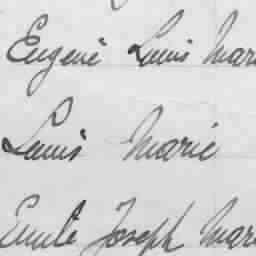 Eugène Louis Mari
Louis Marie
Emile Joseph Mari